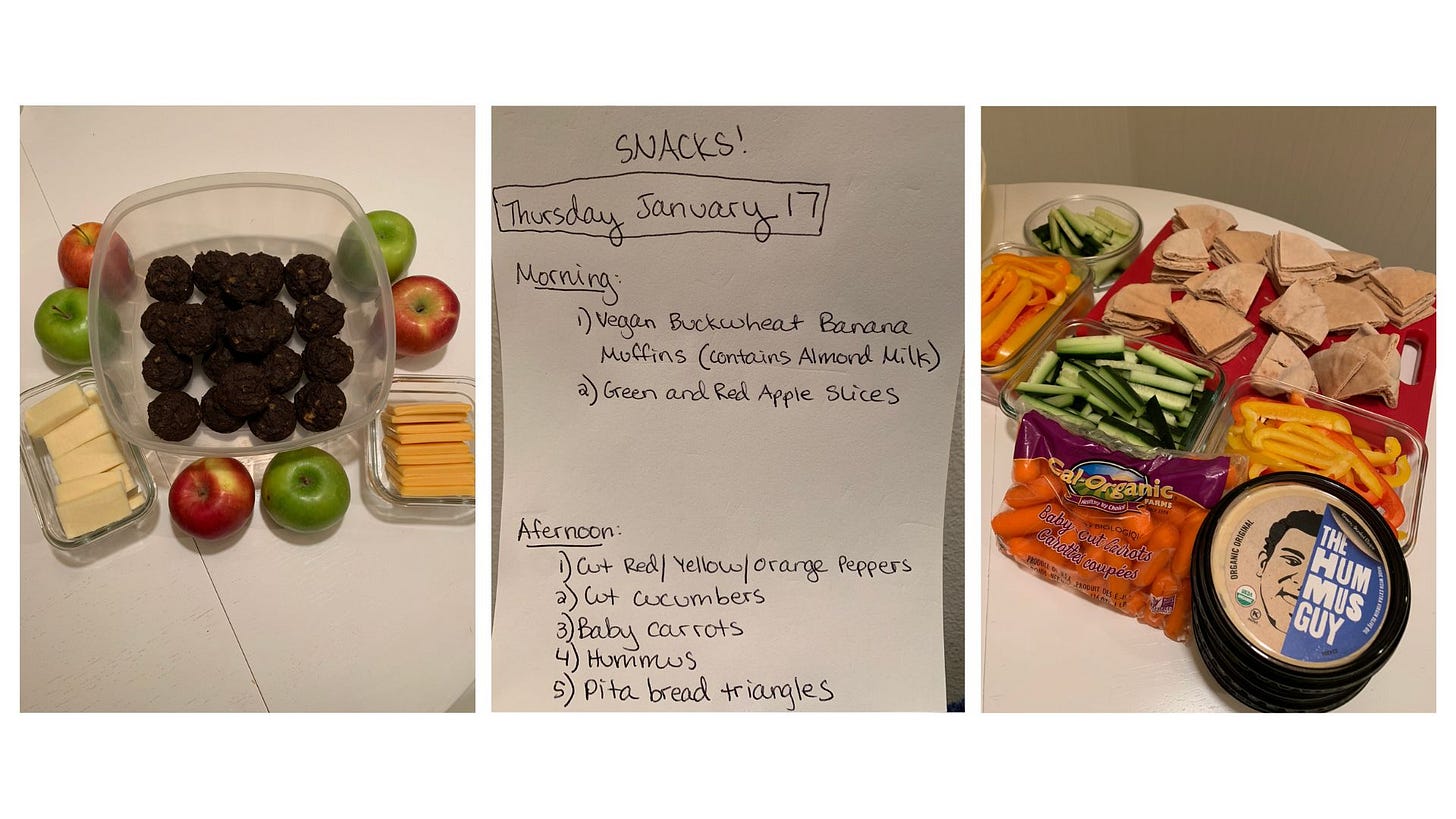 SNACKS!
Thursday January 17
Morning:
1) Vegan Buckwheat Banana
Muffins (contains Almond Milk)
2) Green and Red Apple Slices
Afernoon:
1) Cut Red/Yellow/orange Peppers
2) Cut cucumbers
3) Baby carrots
4) Hummus
5) Pita bread triangles
Cal-Organic
FARMS
Baby Cut Carrots
Carottes coupées
ORGANIC ORIGINAL
THE
HUM
MUS
GUY
USDA